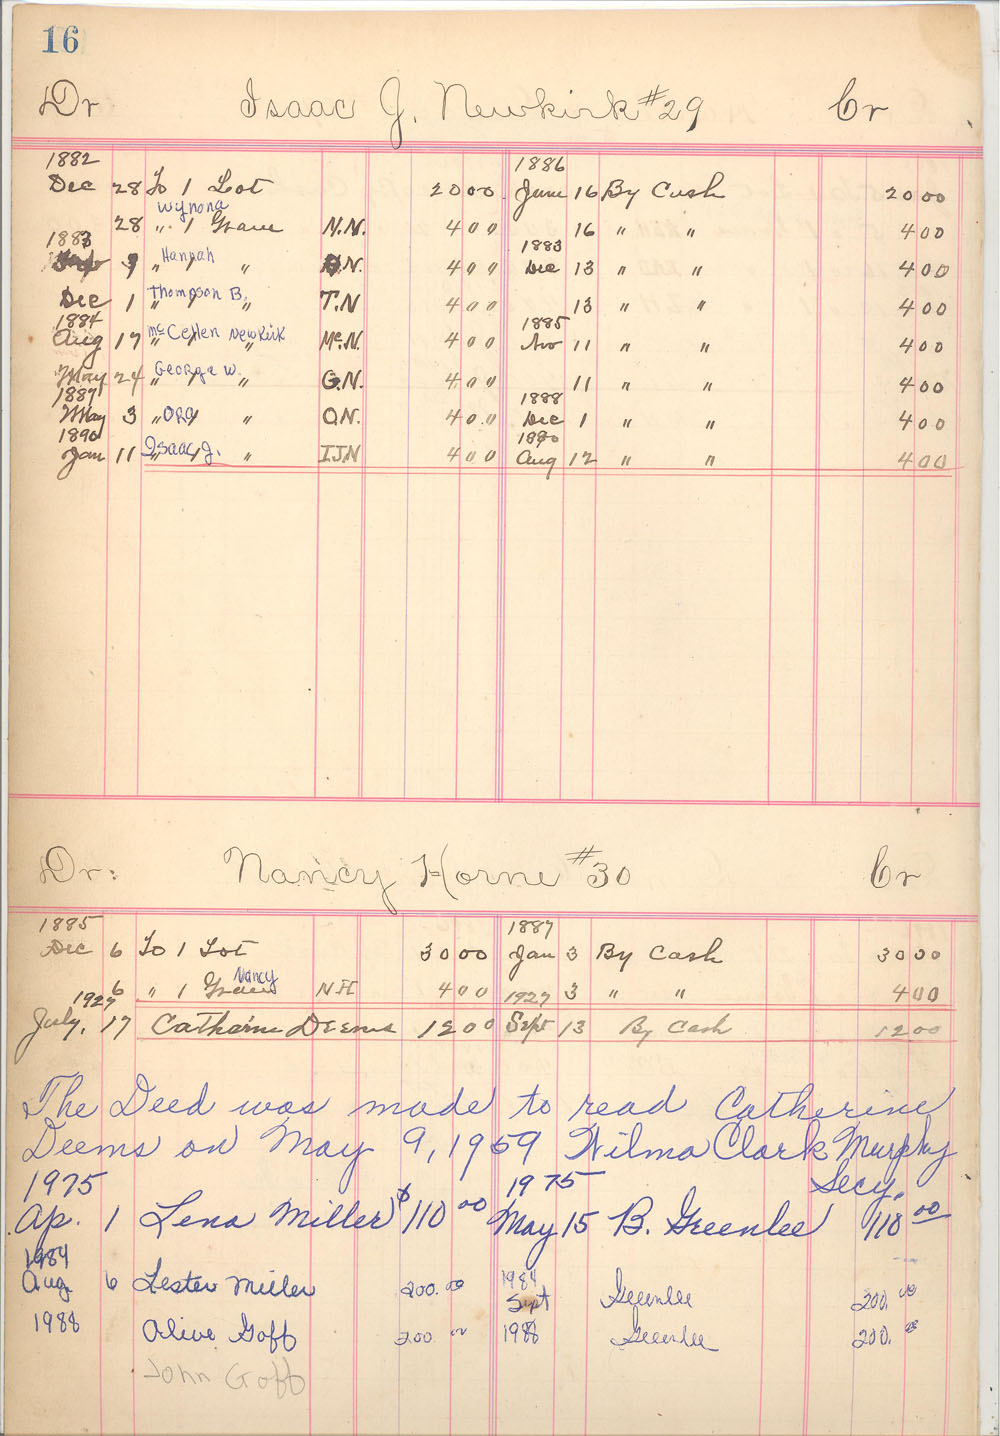 16
Dr Isaac J. Newkirk #29 Cr
1882 1886
Dec 28 To 1 Lot 20 00 June 16 By Cash 20 00
Wynona
28 " 1 Grave N.N. 4 00 16 " " 4 00
1883 1883
9 " Hannah " H.N. 4 00 Dec 13 " " 4 00
Dec 1 Thompson B. " T.N 4 00 13 " " 4 00
1884 1885
Aug 17 Mc Cellen Newkirk " Mc.N. 4 00 Nov 11 " " 4 00
May 24 " George W. " G.N. 4 00 11 " " 4 00
1887 1888
May 3 " Ora " O.N. 4 00 Dec 1 " " 4 00
1890 1890
Jan 11 Isaac J. " I.J.N 4 00 Aug 12 " " 4 00
Dr: Nancy Horne #30 Cr
1885 1887
Dec 6 To 1 Lot 30 00 Jan 3 By Cash 30 00
Nancy
6 " 1 Grave N.H 4 00 3 " " 4 00
1927 1927
July, 17 Catharine Deems 12 00 Sept 13 By Cash 12 00
The Deed was made to read Catherine
Deems on May 9, 1959 Wilma Clark Murphy
Secy.
1975 1975
Ap. 1 Lena Miller $110 00 May 15 B. Greenlee 110 00
1984 1984
Aug 6 Lester Miller 200. 00 Sept Greenlee 200. 00
1988 Olive Goff 200 00 1988 Greenlee 200. 00
John Goff